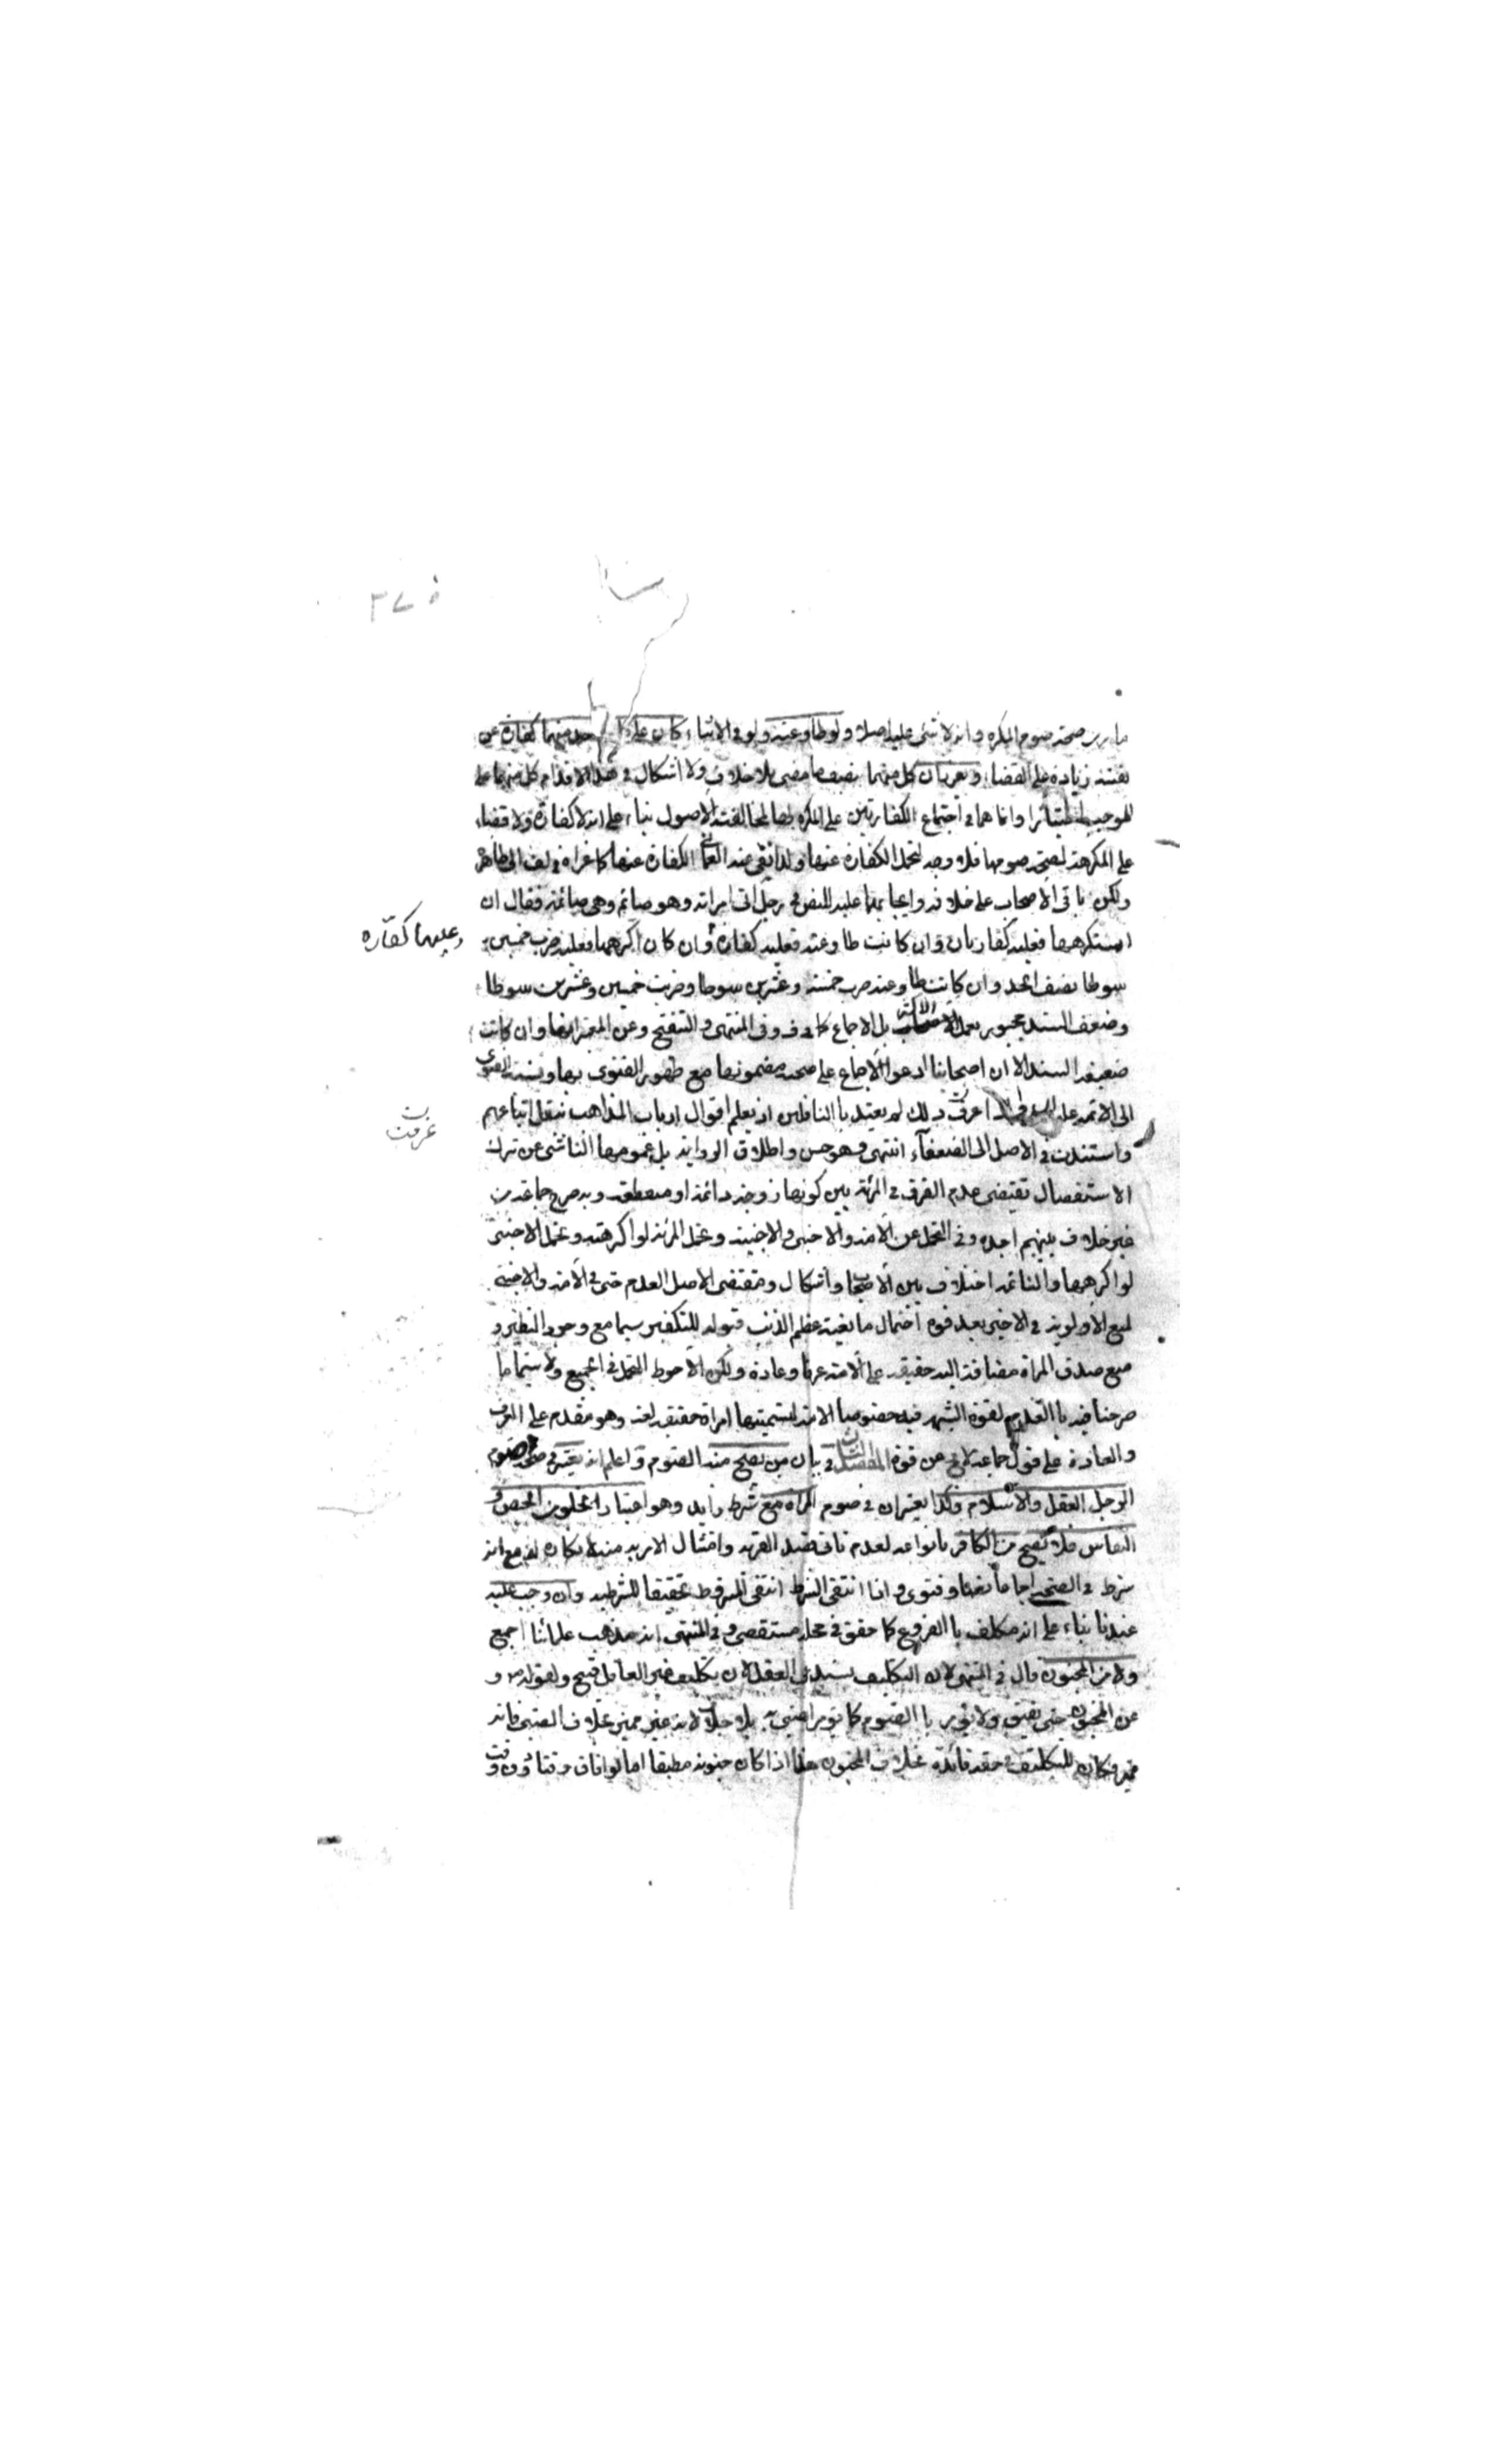 صحة صوم المكره وانه لا شئ عليه اصلا ولو طاوعته ولو فى الاثناء كان على كل واحد منهما كفارة عن
نفسه زيادة على القضاء ويعزران كل منهما بنصف ما مضى بلا خلاف ولا اشكال فى هذا لاقدام كل منهما على
الموجب وانما هما فى اجتماع الكفارتين على المكره لها لمخالفته الاصول بناء على انه لا كفارة ولا قضاء
على المكرهة لصحة صومها فلا وجه لتحمل الكفارة عنها ولذا نفى الكفارة عنها كما عزاه فى لف الى ظاهره
ولكن باقى الاصحاب على خلافه وايجابها عليه للنص فى رجل اتى امراته وهو صائم وهى صائمة فقال ان
استكرهها فعليه كفارتان وان كانت طاوعته فعليه كفارة وان كان اكرهها فعليه ضرب خمسين
وعليها كفارة
سوطا نصف الحد وان كانت طاوعته ضرب خمسة وعشرين سوطا وضربت خمسة وعشرين سوطا
وضعف السند مجبور بعمل الاصحاب بل الاجماع كما فى ف وفى المنتهى والتنقيح وعن المعتبر انها وان كانت
ضعيفة السند الا ان اصحابنا ادعوا الاجماع على صحة مضمونها مع ظهور الفتوى بها ونسبة الفتوى
الى الائمة عليهم السلام عرفت ذلك لم يعتد بالناقلين اذ يعلم اقوال ارباب المذاهب بنقل اتباعهم
عرفت
واستندت فى الاصل الى الضعفاء انتهى وهو حسن واطلاق الرواية بل عمومها الناشئ عن ترك
الاستفصال تقتضى عدم الفرق فى المرئة بين كونها زوجة دائمة او منقطعة وبه صرح جماعة من
غير خلاف بينهم اجده وفى التحمل عن الامة والاجنبى والاجنبية وتحمل المرئة لو اكرهته وتحمل الاجنبى
لو اكرهها والنائمة اختلاف بين الاصحاب واشكال ومقتضى الاصل العدم حتى فى الامة والاجنبية
لمنع الاولوية فى الاخير بعد قوة احتمال مانعية عظم الذنب قبوله للتكفير سيما مع وجود النظير و
منع صدق المراة مضافة اليه حقيقة على الامة عرفا وعادة ولكن الاحوط التحمل فى الجميع ولا سيما ما
صرحنا فيه بالعدم لقوة الشبهة فيه خصوصا الامة لتسميتها امراة حقيقة لغة وهو مقدم على العرف
والعادة على قول جماعة لا يخ عن قوة المقصد الثانى فى بيان من يصح منه الصوم واعلم انه يعتبر فى صحة صوم
الرجل العقل والاسلام وكذا يعتبران فى صوم المراة مع شرط زايد وهو اعتبار الخلو من الحيض و
النفاس فلا يصح من الكافر بانواعه لعدم تاتى قصد القربة وامتثال الامر به منه لمكان كفره مع انه
شرط فى الصحة اجماعا نصا وفتوى واذا انتفى الشرط انتفى المشروط تحقيقا للشرطية وان وجب عليه
عندنا بناء على انه مكلف بالفروع كما حقق فى محله مستقصى وفى المنتهى انه مذهب علمائنا اجمع
ولا من المجنون قال فى المنتهى لان التكليف يستدعى العقل لان تكليف غير العاقل قبيح ولقوله ص و
عن المجنون حتى يفيق ولا يؤمر بالصوم كما يؤمر الصبى به بلا خلاف لانه غير مميز بخلاف الصبى فانه
مميز فكان للتكليف فى حقه فائدة بخلاف المجنون هذا اذا كان جنونه مطبقا اما لو افاق وقتا دون وقت